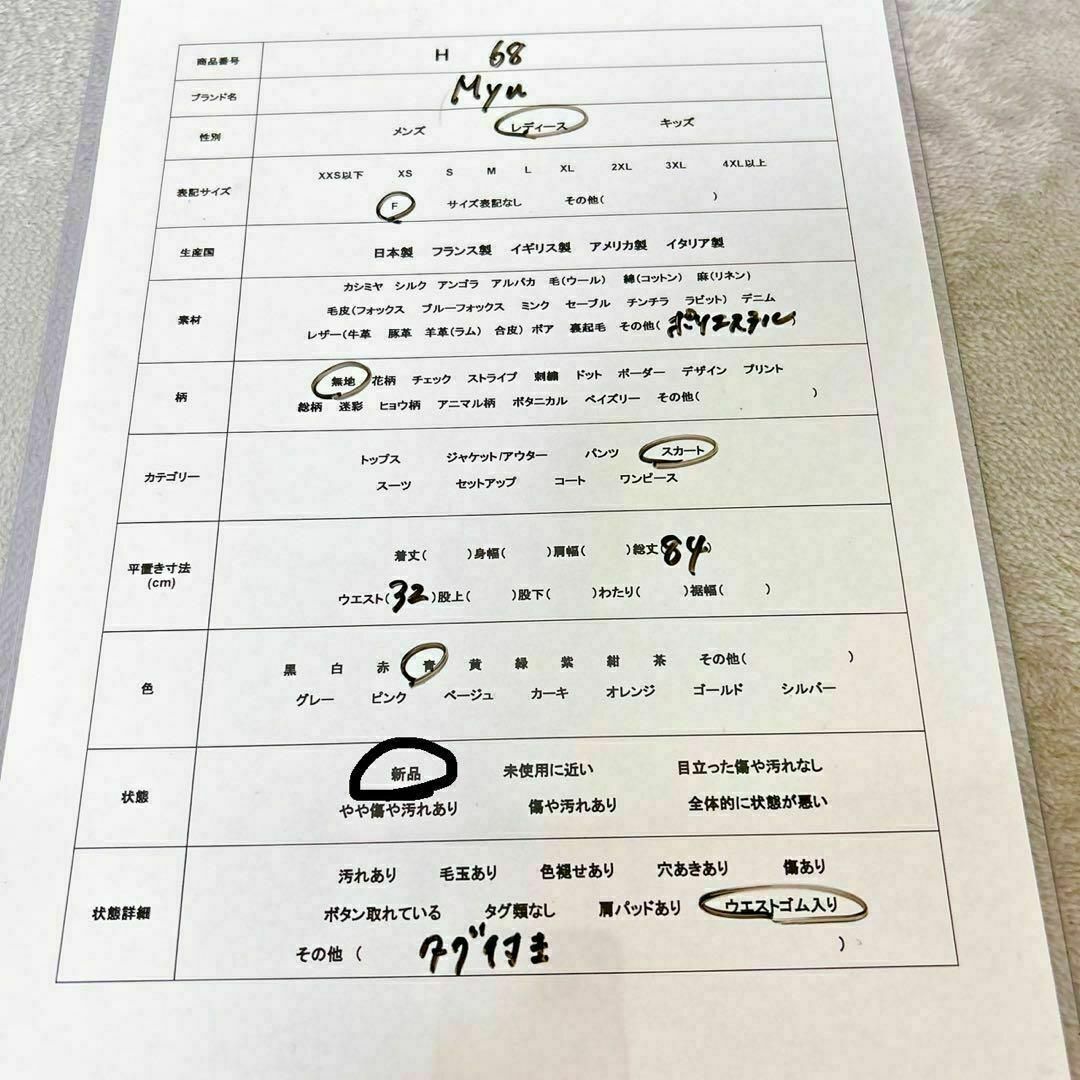 商品番号 H 68
ブランド名 Myu
性別 メンズ レディース キッズ
表記サイズ
XXS以下 XS S M L XL 2XL 3XL 4XL以上
F サイズ表記なし その他( )
生産国 日本製 フランス製 イギリス製 アメリカ製 イタリア製
素材
カシミヤ シルク アンゴラ アルパカ 毛(ウール) 綿(コットン) 麻(リネン)
毛皮(フォックス ブルーフォックス ミンク セーブル チンチラ ラビット) デニム
レザー(牛革 豚革 羊革(ラム) 合皮) ボア 裏起毛 その他( ポリエステル )
柄
無地 花柄 チェック ストライプ 刺繍 ドット ボーダー デザイン プリント
総柄 迷彩 ヒョウ柄 アニマル柄 ボタニカル ペイズリー その他( )
カテゴリー
トップス ジャケット/アウター パンツ スカート
スーツ セットアップ コート ワンピース
平置き寸法
(cm)
着丈( )身幅( )肩幅( )総丈(84)
ウエスト(32)股上( )股下( )わたり( )裾幅( )
色
黒 白 赤 青 黄 緑 紫 紺 茶 その他( )
グレー ピンク ベージュ カーキ オレンジ ゴールド シルバー
状態
新品 未使用に近い 目立った傷や汚れなし
やや傷や汚れあり 傷や汚れあり 全体的に状態が悪い
状態詳細
汚れあり 毛玉あり 色褪せあり 穴あきあり 傷あり
ボタン取れている タグ類なし 肩パッドあり ウエストゴム入り
その他 ( タグ付き )